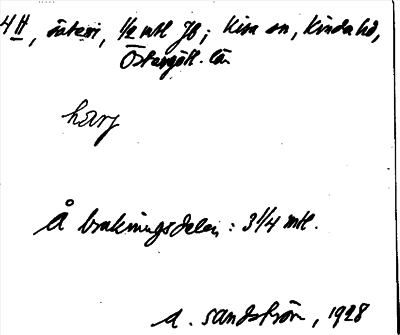 säteri, 1/2 mtl Jb; Kisa sn, Kinda hd,
Östergötl. län
harg
Å brukningsdelen: 3 1/4 mtl.
A. Sandström, 1928